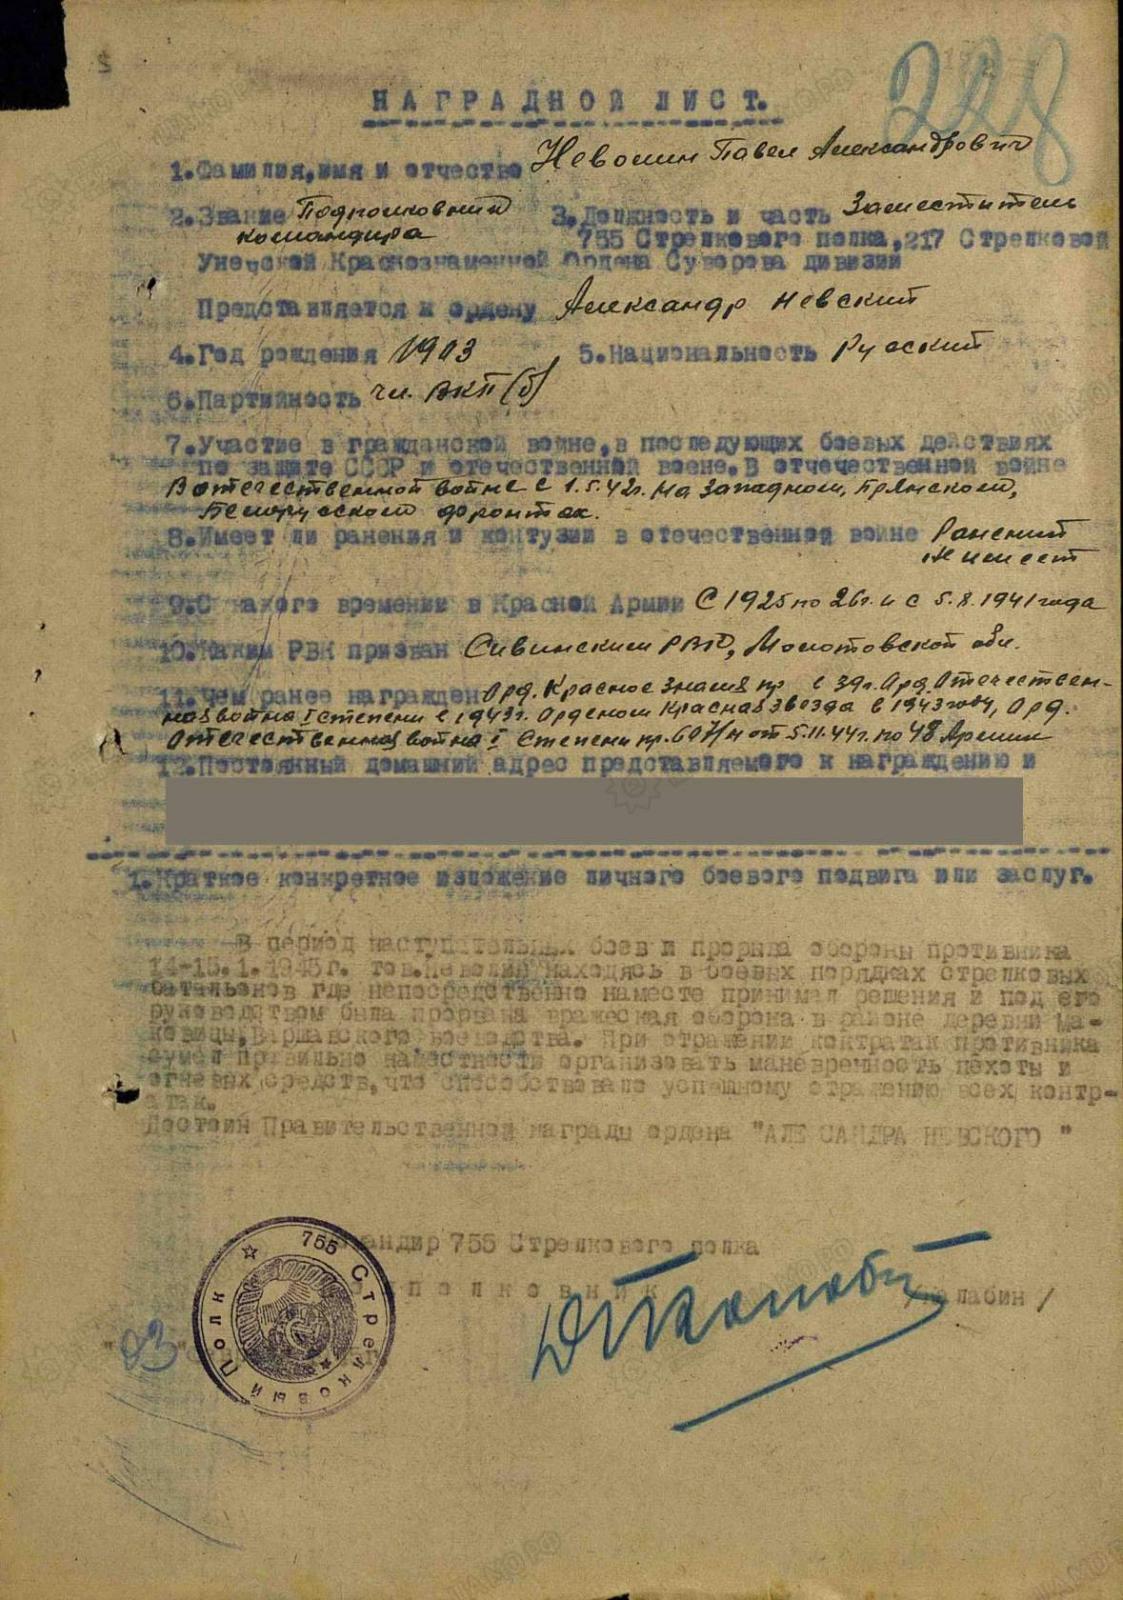 228
НАГРАДНОЙ ЛИСТ.
1.Фамилия,имя и отчество Неволин Павел Александрович
2.Звание Подполковник 3.Должность и часть Заместитель
командира 755 Стрелкового полка,217 Стрелковой
Унечской Краснознаменной Ордена Суворова дивизии
Представляется к ордену Александр Невский
4.Год рождения 1903 5.Национальность Русский
6.Партийность чл. ВКП(б)
7.Участие в гражданской войне,в последующих боевых действиях
по защите СССР и отечественной воене.В отчечественной войне
В отечественной войне с 1.5.42г. на Западном, Брянском,
Белорусском фронтах.
8.Имеет ли ранения и контузии в отечественной войне Ранений
не имеет
9.С какого времени в Красной Армии С 1925 по 26г. и с 5.8.1941 года
10.Каким РВК призван Сивинским РВК, Молотовской обл.
11.Чем ранее награжден Орд. Красное Знамя пр с 39г. Орд. Отечествен-
ная война I степени в 1943г. Орденом Красная звезда в 1943 году, Орд.
Отечественная война I степени пр. 607/н от 5.11.44г. по 48 Армии
12.Постоянный домашний адрес представляемого к награждению и
1.Краткое конкретное изложение личного боевого подвига или заслуг.
В период наступательных боев и прорыва обороны противника
14-15.1.1945г. тов.Неволин находясь в боевых порядках стрелковых
батальонов где непосредственно наместе принимал решения и под его
руководством была прорвана вражеская оборона в районе деревни Ма-
ковицы,Варшавского воеводства. При отражении контратак противника
сумел правильно наместности организовать маневренность пехоты и
огневых средств,что способствовало успешному отражению всех контр-
атак.
Достоин Правительственной награды ордена "АЛЕ САНДРА НЕВСКОГО "
андир 755 Стрелкового полка
полковник
/ алабин /
"03"
755 Стрелковый Полк